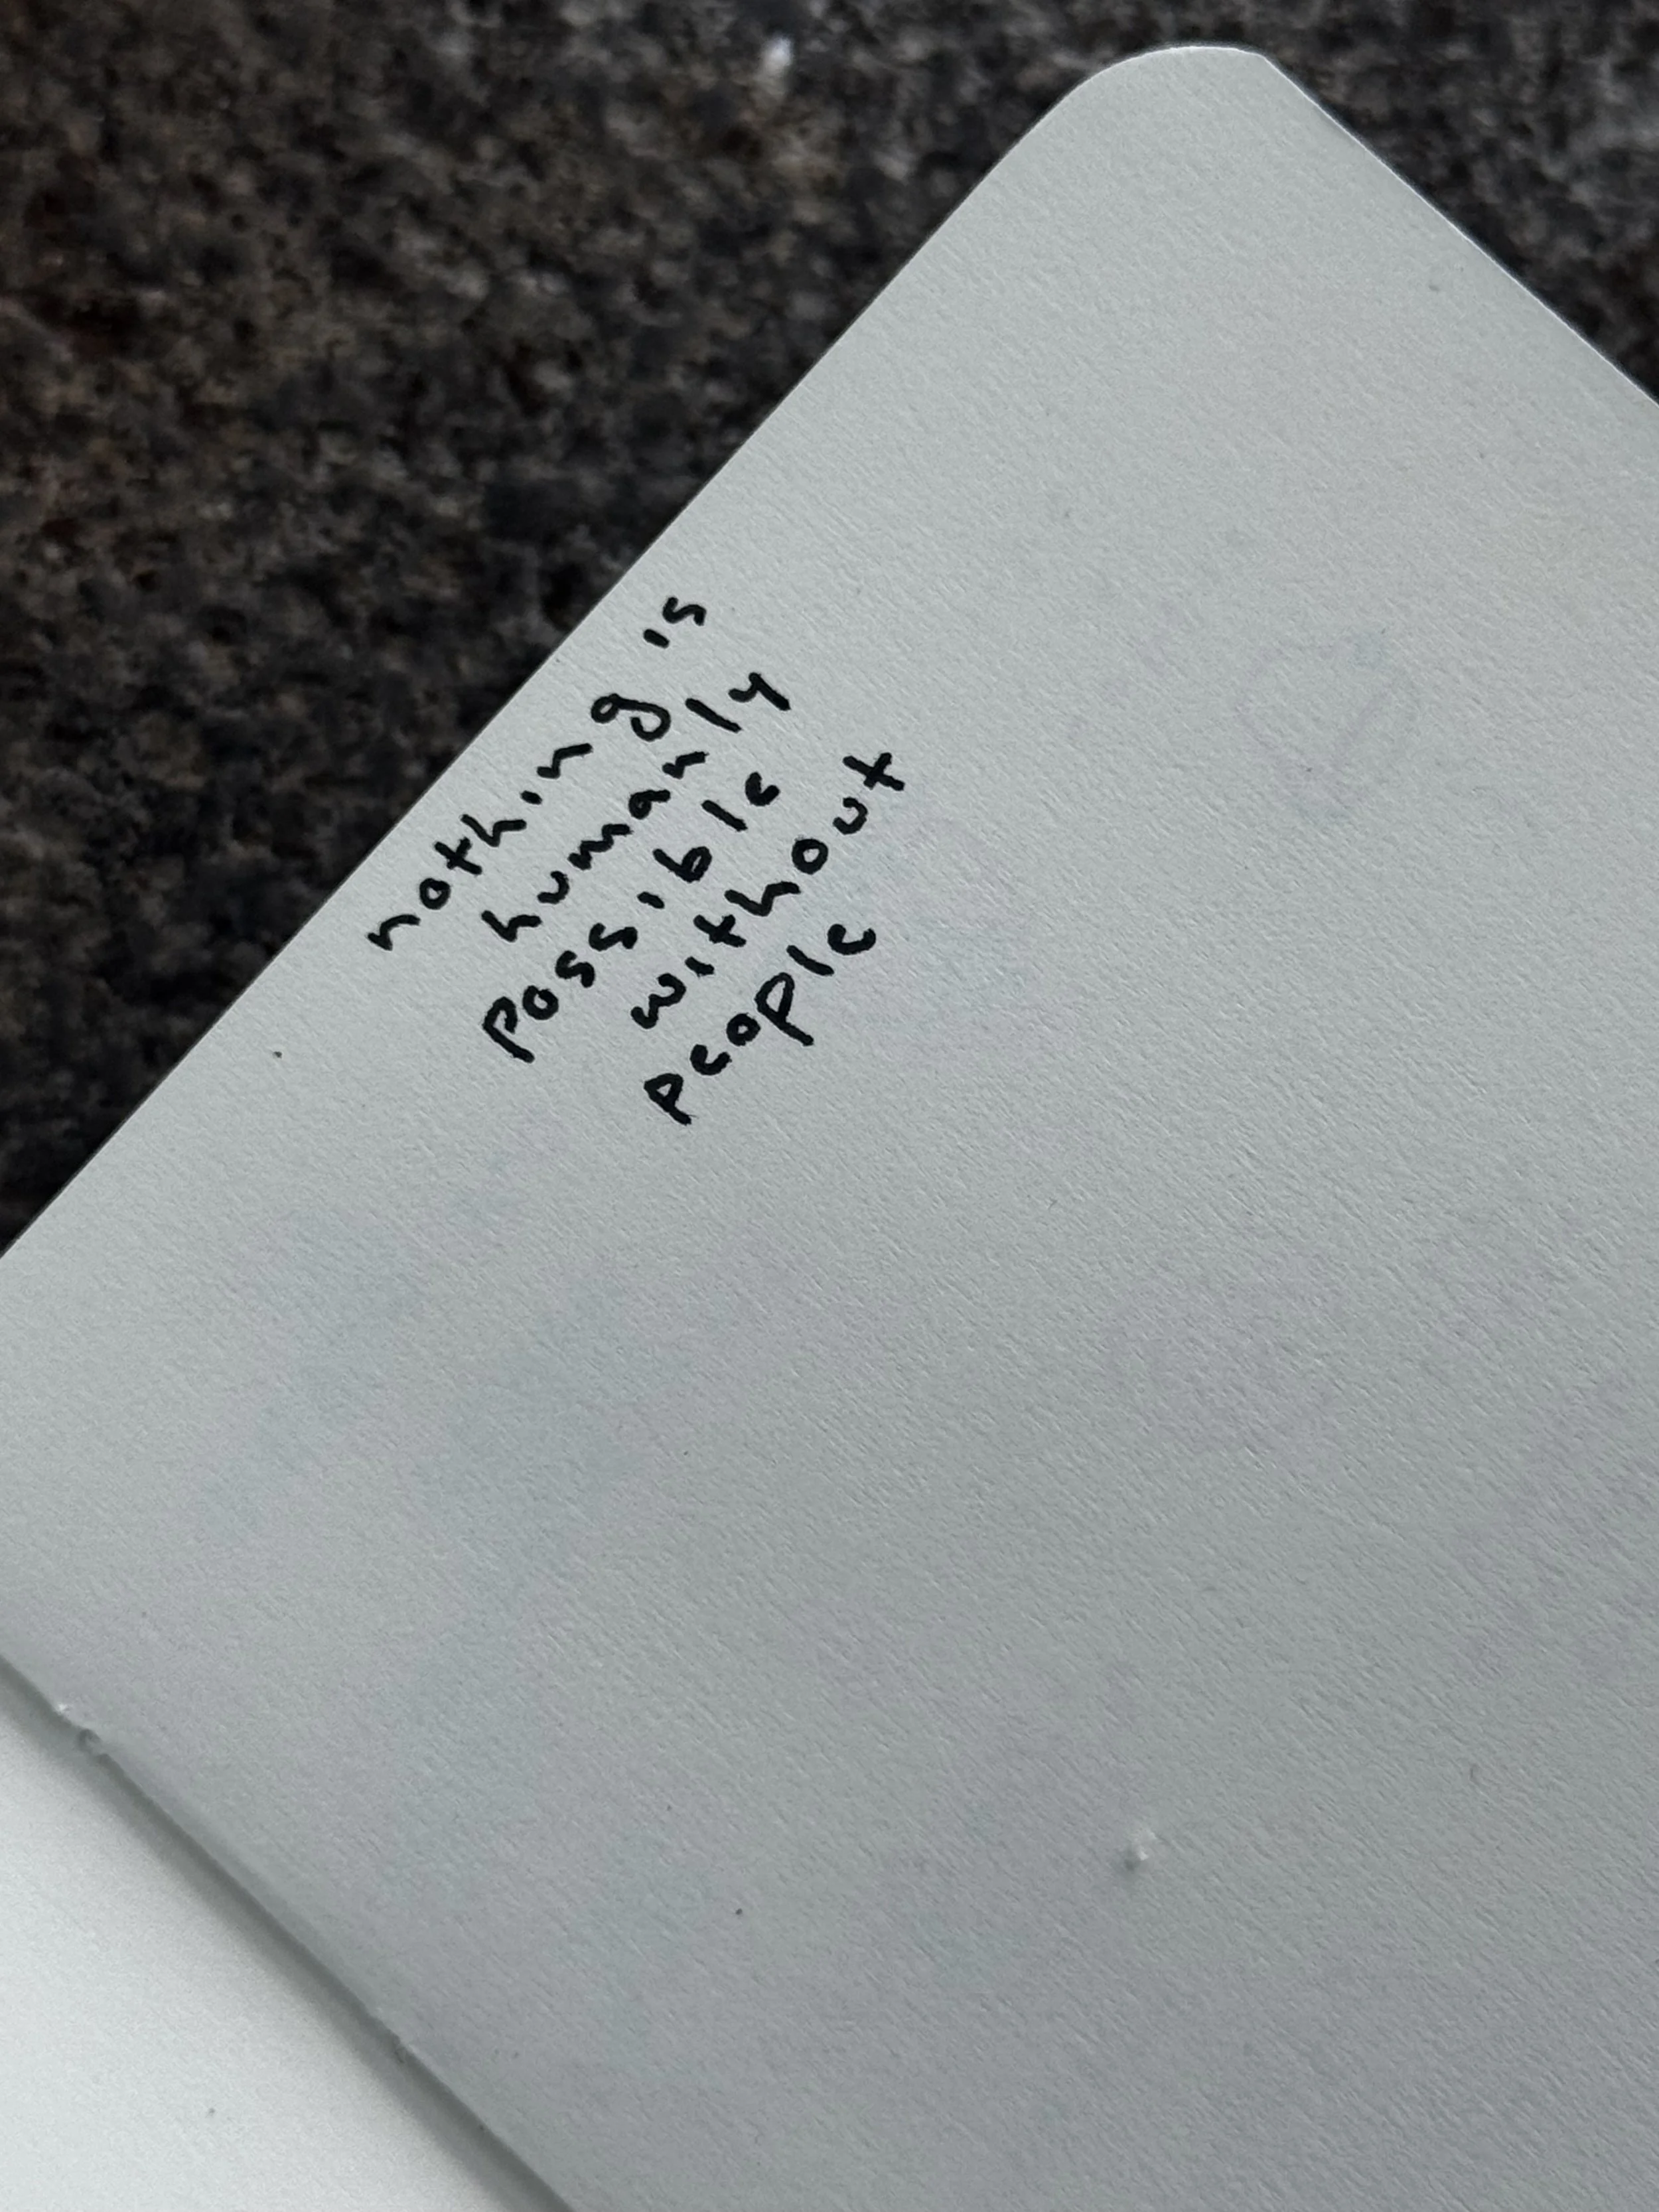 nothing is
humanly
possible
without
people